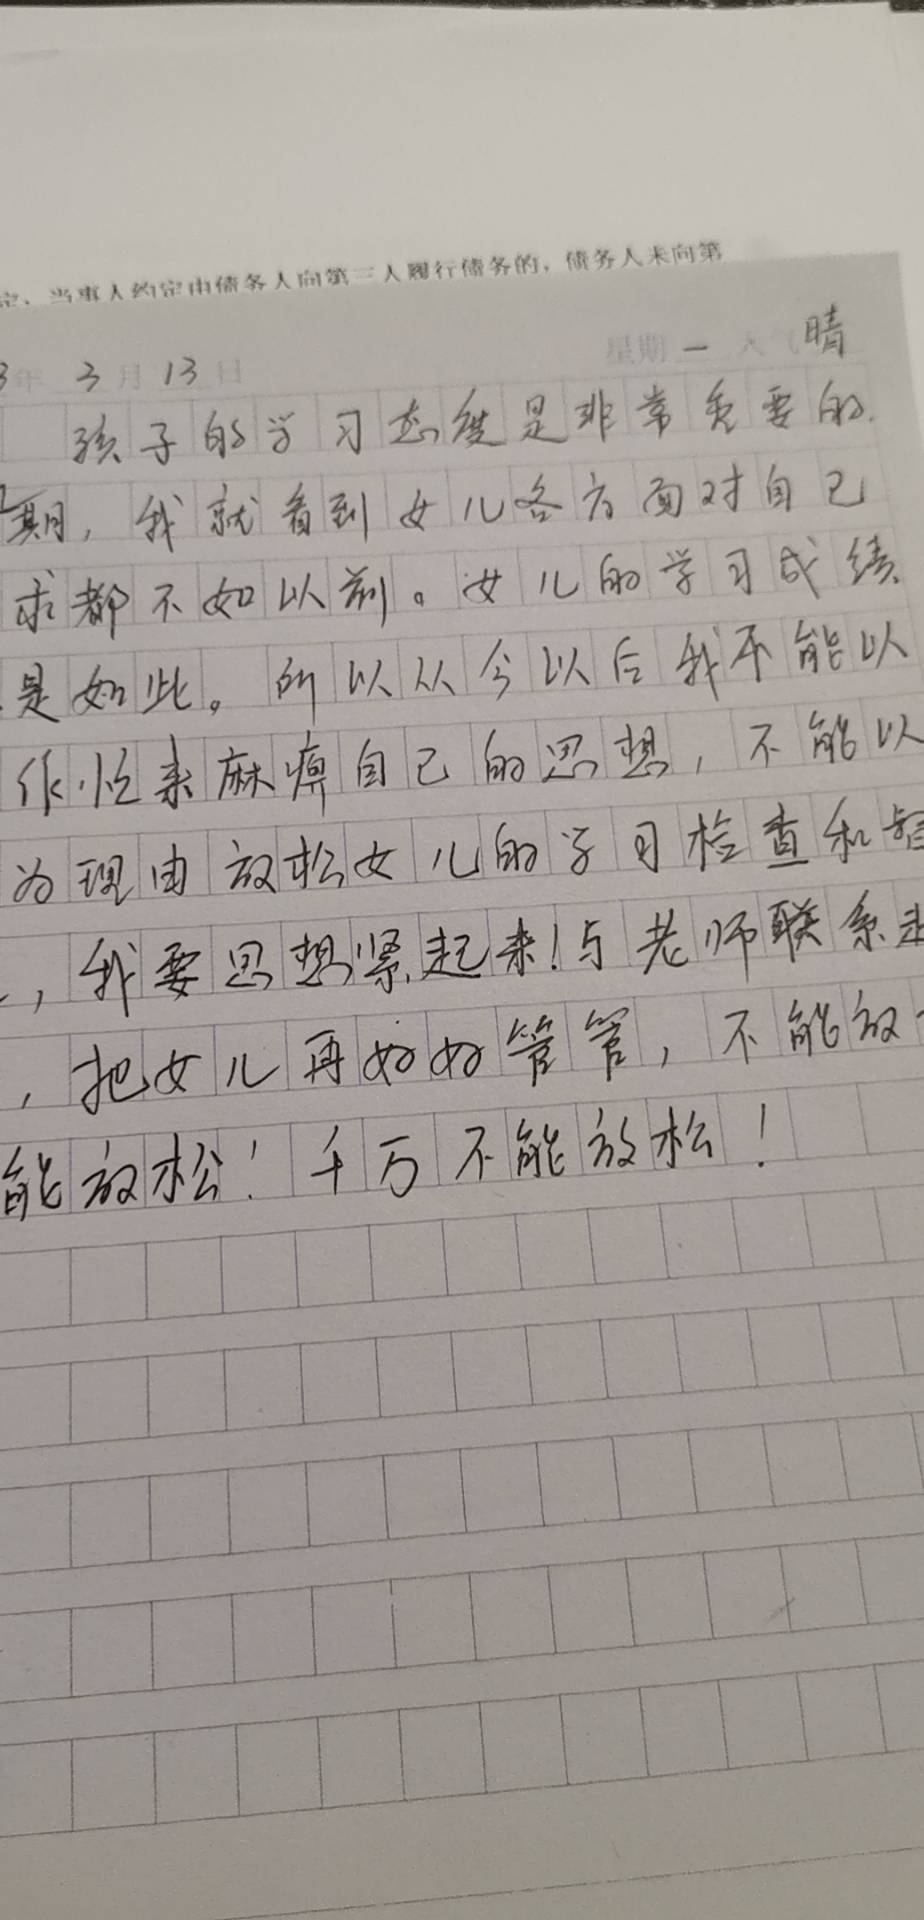 定，当事人约定由债务人向第三人履行债务的，债务人未向第
3年 3月 13日 星期 一 天气 晴
孩子的学习态度是非常重要的.
期，我就看到女儿各方面对自己
求都不如以前。女儿的学习成绩
是如此。所以从今以后我不能以
作忙来麻痹自己的思想，不能以
为理由放松女儿的学习检查和
，我要思想紧起来！与老师联系起
，把女儿再好好管管，不能放
能放松！千万不能放松！